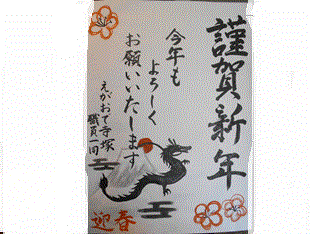 謹賀新年
今年も
よろしく
お願いいたします
えがおで寺塚
職員一同
迎春